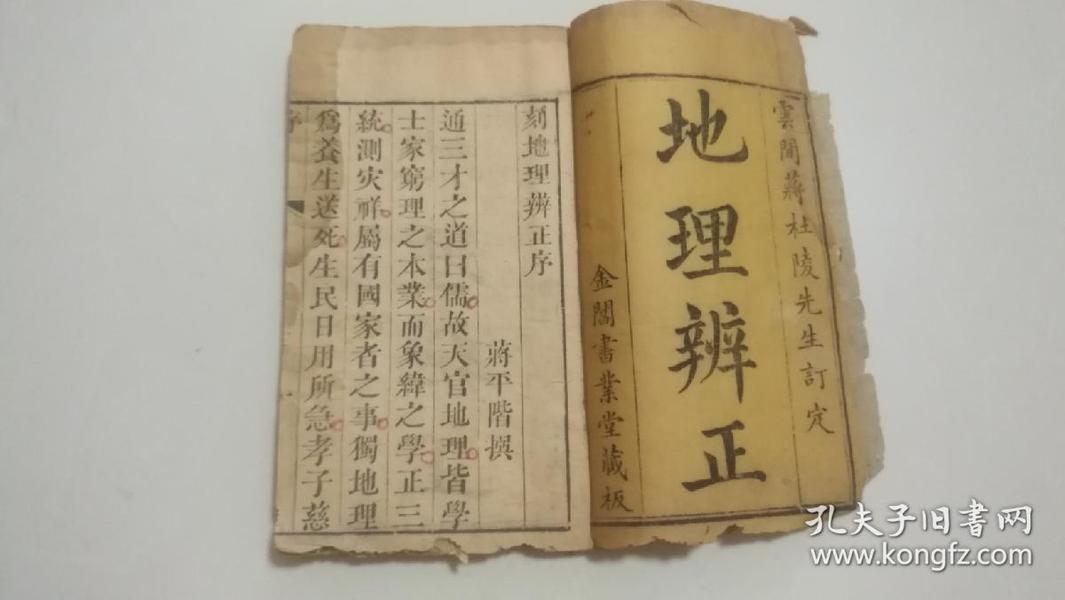 雲間蔣杜陵先生訂定
地理辨正
金閶書業堂藏板
刻地理辨正序
蔣平階撰
通三才之道曰儒故天官地理皆學
士家窮理之本業而象緯之學正三
統測灾祥屬有國家者之事獨地理
爲養生送死生民日用所急孝子慈
序
孔夫子旧书网
www.kongfz.com